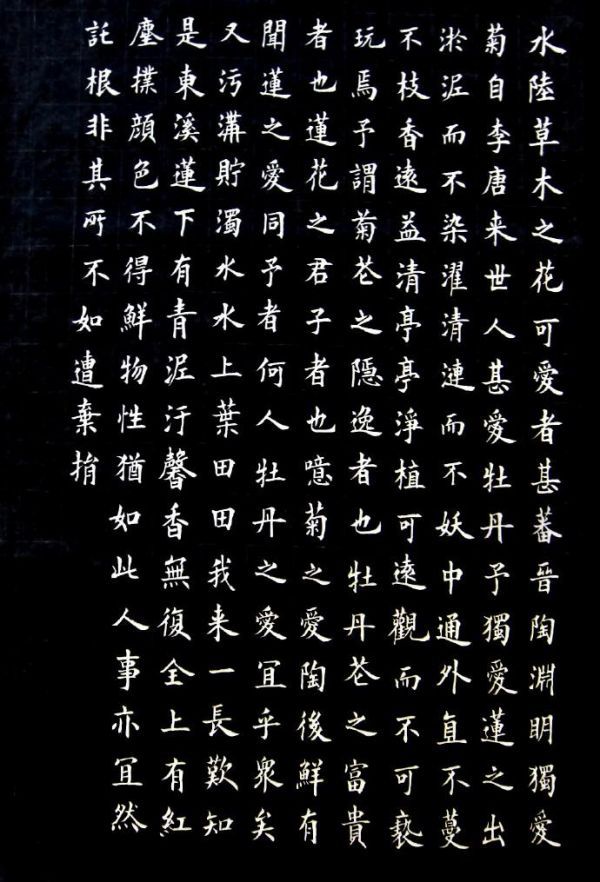 水陸草木之花可愛者甚蕃晉陶淵明獨愛
菊自李唐来世人甚愛牡丹予獨愛蓮之出
淤泥而不染濯清漣而不妖中通外直不蔓
不枝香遠益清亭亭淨植可遠觀而不可褻
玩焉予謂菊花之隱逸者也牡丹花之富貴
者也蓮花之君子者也噫菊之愛陶後鮮有
聞蓮之愛同予者何人牡丹之愛宜乎眾矣
又污溝貯濁水水上葉田田我来一長歎知
是東溪蓮下有青泥汙馨香無復全上有紅
塵撲顔色不得鮮物性猶如此人事亦宜然
託根非其所不如遭棄捐